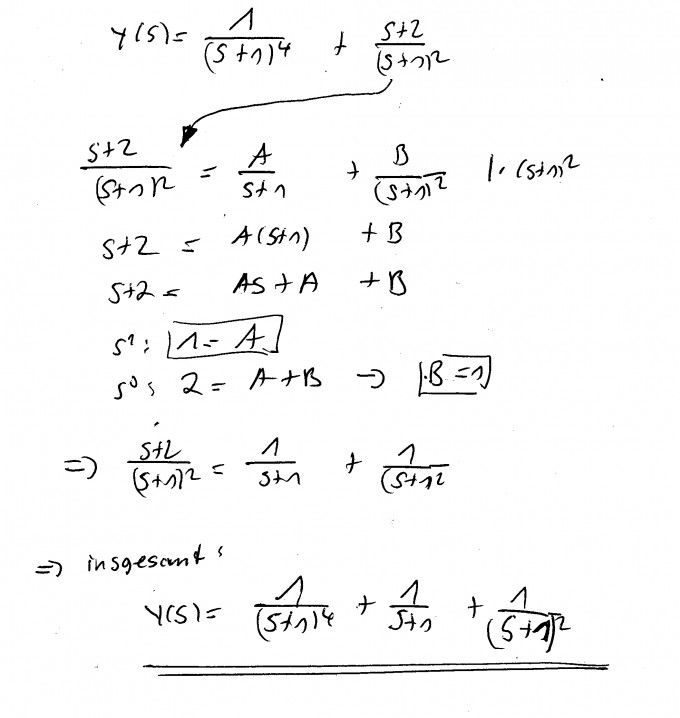 Y(s) = 1/(s+1)^4 + (s+2)/(s+1)^2
(s+2)/(s+1)^2 = A/(s+1) + B/(s+1)^2 |· (s+1)^2
s+2 = A(s+1) + B
s+2 = As + A + B
s^1: 1 = A
s^0: 2 = A+B → B = 1
=> (s+2)/(s+1)^2 = 1/(s+1) + 1/(s+1)^2
=> insgesamt:
Y(s) = 1/(s+1)^4 + 1/(s+1) + 1/(s+1)^2